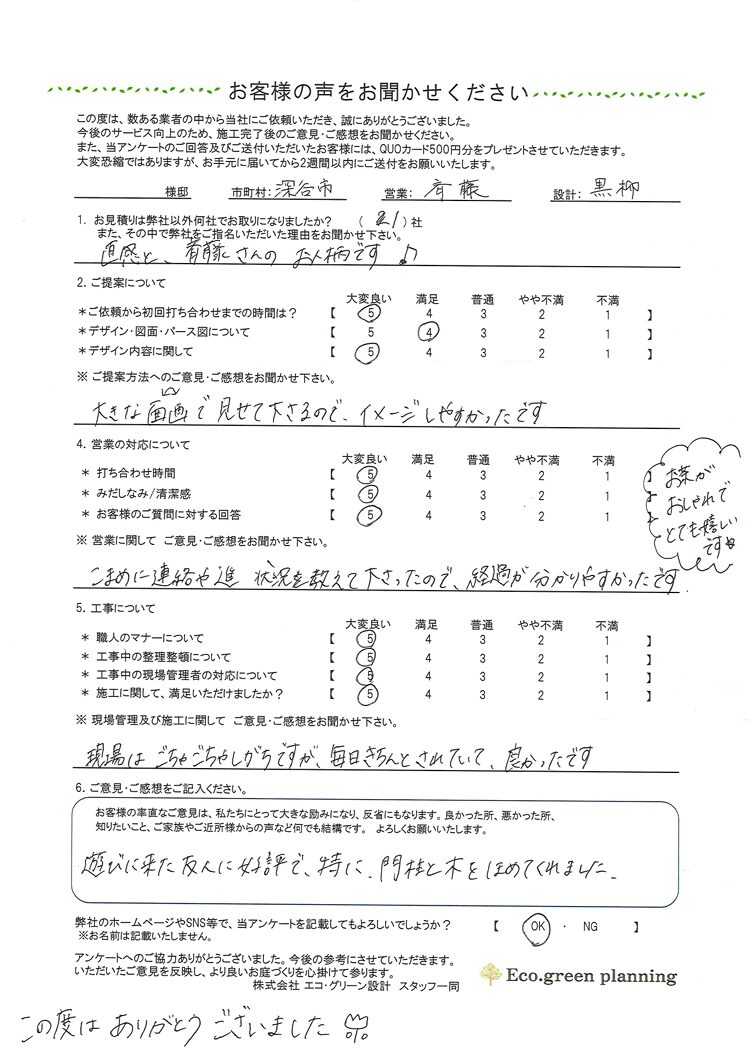 お客様の声をお聞かせください
この度は、数ある業者の中から当社にご依頼いただき、誠にありがとうございました。
今後のサービス向上のため、施工完了後のご意見・ご感想をお聞かせください。
また、当アンケートのご回答及びご送付いただいたお客様には、QUOカード500円分をプレゼントさせていただきます。
大変恐縮ではありますが、お手元に届いてから2週間以内にご送付をお願いいたします。
様邸 市町村：深谷市 営業：斉藤 設計：黒柳
1. お見積りは弊社以外何社でお取りになりましたか？ （ 21 ）社
また、その中で弊社をご指名いただいた理由をお聞かせ下さい。
直感と、斉藤さんの お人柄です♪
2. ご提案について
大変良い 満足 普通 やや不満 不満
＊ご依頼から初回打ち合わせまでの時間は？ 【 5 4 3 2 1 】
＊デザイン・図面・パース図について 【 5 4 3 2 1 】
＊デザイン内容に関して 【 5 4 3 2 1 】
※ ご提案方法へのご意見・ご感想をお聞かせ下さい。
大きな画面で見せて下さるので、イメージしやすかったです
4. 営業の対応について
大変良い 満足 普通 やや不満 不満
＊ 打ち合わせ時間 【 5 4 3 2 1 】
＊ みだしなみ/清潔感 【 5 4 3 2 1 】
＊ お客様のご質問に対する回答 【 5 4 3 2 1 】
お茶が
おしゃれで
とても嬉しい
です
※ 営業に関して ご意見・ご感想をお聞かせ下さい。
こまめに連絡や進 状況を教えて下さったので、経過が分かりやすかったです
5. 工事について
大変良い 満足 普通 やや不満 不満
＊ 職人のマナーについて 【 5 4 3 2 1 】
＊ 工事中の整理整頓について 【 5 4 3 2 1 】
＊ 工事中の現場管理者の対応について 【 5 4 3 2 1 】
＊ 施工に関して、満足いただけましたか？ 【 5 4 3 2 1 】
※ 現場管理及び施工に関して ご意見・ご感想をお聞かせ下さい。
現場は ごちゃごちゃしがちですが、毎日きちんとされていて、良かったです
6. ご意見・ご感想をご記入ください。
お客様の率直なご意見は、私たちにとって大きな励みになり、反省にもなります。良かった所、悪かった所、
知りたいこと、ご家族やご近所様からの声など何でも結構です。 よろしくお願いいたします。
遊びに来た友人に好評で、特に、門柱と木をほめてくれました。
弊社のホームページやSNS等で、当アンケートを記載してもよろしいでしょうか？ 【 OK ・ NG 】
※お名前は記載いたしません。
アンケートへのご協力ありがとうございました。今後の参考にさせていただきます。
いただいたご意見を反映し、より良いお庭づくりを心掛けて参ります。
株式会社 エコ・グリーン設計 スタッフ一同
Eco.green planning
この度は ありがとう ございました